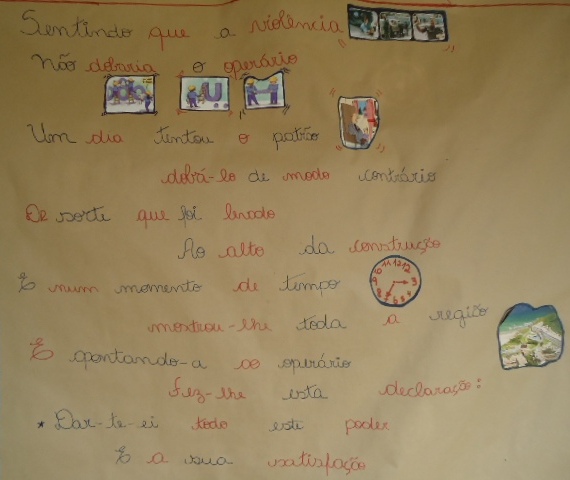 Sentindo que a violência
Não dobraria o operário
Um dia tentou o patrão
dobrá-lo de modo contrário
De sorte que foi levado
Ao alto da construção
E num momento de tempo
mostrou-lhe toda a região
E apontando-a ao operário
Fez-lhe esta declaração:
* Dar-te-ei todo este poder
E a sua satisfação